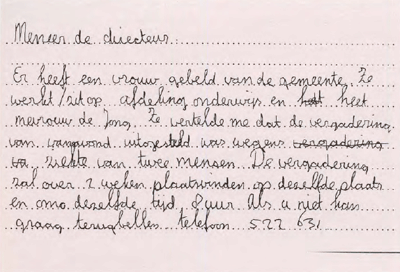 Meneer de directeur
Er heeft een vrouw gebeld van de gemeente. Ze
werkt/zit op afdeling onderwijs en heet
mevrouw de Jong. Ze vertelde me dat de vergadering
van vanavond uitgesteld was wegens vergadering
ziekte van twee mensen. De vergadering
zal over 2 weken plaatsvinden op dezelfde plaats
en omo dezelfde tijd 8 uur. Als u niet kan
graag terugbellen telefoon 522 631